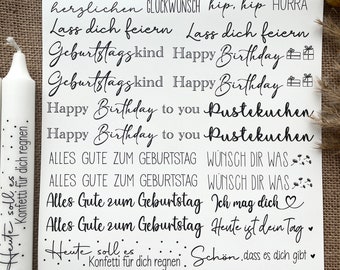 herzlichen GLÜCKWUNSCH hip, hip HURRA
Lass dich feiern Lass dich feiern
Geburtstagskind Happy Birthday
Geburtstagskind Happy Birthday
Happy Birthday to you Pustekuchen
Happy Birthday to you Pustekuchen
ALLES GUTE ZUM GEBURTSTAG WÜNSCH DIR WAS
ALLES GUTE ZUM GEBURTSTAG WÜNSCH DIR WAS
Alles Gute zum Geburtstag Ich mag dich
Alles Gute zum Geburtstag Heute ist dein Tag
Heute soll es Konfetti für dich regnen
Schön, dass es dich gibt
Heute soll es
Konfetti für dich regnen